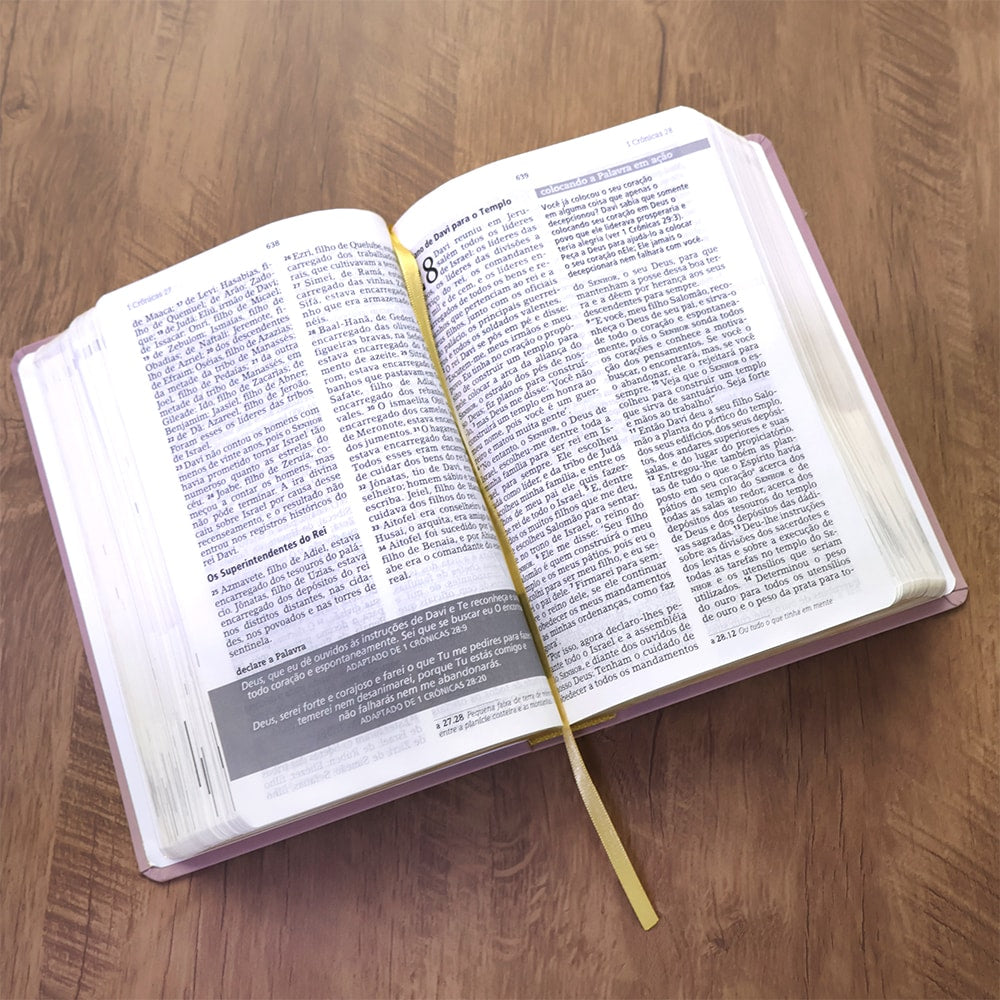 638
1 Crônicas 27
de Maaca; ¹⁷ de Levi: Hasabias, fi-
lho de Quemuel; de Arão: Zado-
que; ¹⁸ de Judá: Eliú, irmão de Davi;
de Issacar: Onri, filho de Micael;
de Zebulom: Ismaías, filho de
Obadias; de Naftali: Jerimote, fi-
lho de Azriel; ²⁰ dos descendentes
de Efraim: Oseias, filho de Azazias;
da metade da tribo de Manassés:
Joel, filho de Pedaías; ²¹ da outra
metade da tribo de Manassés, em
Gileade: Ido, filho de Zacarias; de
Benjamim: Jaasiel, filho de Abner;
²² de Dã: Azareel, filho de Jeroão.
Foram esses os líderes das tribos
de Israel.
²³ Davi não contou os homens com
menos de vinte anos, pois o SENHOR
havia prometido tornar Israel tão
numeroso quanto as estrelas do
céu. ²⁴ Joabe, filho de Zeruia, co-
meçou a contar os homens, mas
não pôde terminar. A ira divina
caiu sobre Israel por causa desse
recenseamento, e o resultado não
entrou nos registros históricos do
rei Davi.
Os Superintendentes do Rei
²⁵ Azmavete, filho de Adiel, estava
encarregado dos tesouros do palá-
cio. Jônatas, filho de Uzias, estava
encarregado dos depósitos do rei
nos distritos distantes, nas cida-
des, nos povoados e nas torres de
sentinela.
²⁶ Ezri, filho de Quelube,
encarregado dos trabalha
rais, que cultivavam a
²⁷ Simei, de Ramá,
carregado das vinhas;
Sifá, estava encarregado
nho que era armazena
néis.
²⁸ Baal-Hanã, de Geder,
encarregado das oliveira
figueiras bravas, na
Joás estava encarregado
mento de azeite. ²⁹ Sitrai
rom, estava encarregado
banhos que pastavam
Safate, filho de Adlai,
encarregado dos re
vales. ³⁰ O ismaelita O
carregado dos camelos
de Meronote, estava
dos jumentos. ³¹ O hagar
Todos esses eram enca
de cuidar dos bens do
³² Jônatas, tio de Davi,
selheiro; homem sábio e
escriba. Jeiel, filho de Ha
cuidava dos filhos do
³³ Aitofel era conselheiro
Husai, o arquita, era amigo
³⁴ Aitofel foi sucedido por
filho de Benaia, e por Abia
era o comandante do
real.
declare a Palavra
Deus, que eu dê ouvidos às instruções de Davi e Te reconheça
todo coração e espontaneamente. Sei que se buscar eu O encon
ADAPTADO DE 1 CRÔNICAS 28:9
Deus, serei forte e corajoso e farei o que Tu me pedires para faze
temerei nem desanimarei, porque Tu estás comigo e
não falharás nem me abandonarás.
ADAPTADO DE 1 CRÔNICAS 28:20
a 27.28 Pequena faixa de terra de
entre a planície costeira e as montanha
639
1 Crônicas 28
ano de Davi para o Templo
8 Davi reuniu em Jeru-
salém todos os líderes
de Israel: os líderes das
os líderes das divisões a
do rei, os comandantes
de mil e de cem, e os líderes en-
dos de todos os bens e re-
que pertenciam ao rei e
filhos, junto com os oficiais
os principais guerrei-
todos os soldados valentes.
Davi se pôs em pé e disse:
em-me, meus irmãos e meu
Eu tinha no coração o propó-
de construir um templo para
colocar a arca da aliança do
o estrado dos pés de nosso
Deus; fiz planos para construí-
mas Deus me disse: 'Você não
um templo em honra ao
nome, pois você é um guer-
e matou muita gente'.
No entanto, o SENHOR, o Deus de
Israel, escolheu-me dentre toda a
minha família para ser rei em Is-
para sempre. Ele escolheu
como líder, e da tribo de Judá
minha família, e entre os
de meu pai ele quis fazer-
de todo o Israel. ⁵ E, dentre
os muitos filhos que me deu,
escolheu Salomão para sentar-
no trono de Israel, o reino do
⁶ Ele me disse: 'Seu filho
será quem construirá o
templo e os meus pátios, pois eu o
para ser meu filho, e eu se-
o pai dele. ⁷ Firmarei para sem-
o reino dele, se ele continuar
obedecer os meus mandamentos
as minhas ordenanças, como faz
Por isso, agora declaro-lhes pe-
rante todo o Israel e a assembleia
SENHOR, e diante dos ouvidos de
nosso Deus: Tenham o cuidado de
obedecer a todos os mandamentos
colocando a Palavra em ação
Você já colocou o seu coração
em alguma coisa que apenas o
decepcionou? Davi sabia que somente
colocando seu coração em Deus o
povo que ele liderava prosperaria e
teria alegria (ver 1 Crônicas 29:3).
Peça a Deus para ajudá-lo a colocar
seu coração n'Ele; Ele jamais o
decepcionará nem falhará com você.
do SENHOR, o seu Deus, para que
mantenham a posse dessa boa ter-
ra e a dêem por herança aos seus
descendentes para sempre.
⁹ "E você, meu filho Salomão, reco-
nheça o Deus de seu pai, e sirva-o
de todo o coração e espontanea-
mente, pois o SENHOR sonda todos
os corações e conhece a motiva-
ção dos pensamentos. Se você o
buscar, o encontrará, mas, se você
o abandonar, ele o rejeitará para
sempre. ¹⁰ Veja que o SENHOR o es-
colheu para construir um templo
que sirva de santuário. Seja forte
e mãos ao trabalho!"
¹¹ Então Davi deu a seu filho Salo-
mão a planta do pórtico do templo,
dos seus edifícios, dos seus depósi-
tos, dos andares superiores e suas
salas, e do lugar do propiciatório.
¹² Entregou-lhe também as plan-
tas de tudo o que o Espírito havia
posto em seu coração acerca dos
pátios do templo do SENHOR e de
todas as salas ao redor, acerca dos
depósitos dos tesouros do templo
de Deus e dos depósitos das dádi-
vas sagradas. ¹³ Deu-lhe instruções
sobre as divisões dos sacerdotes e
dos levitas e sobre a execução de
todas as tarefas no templo do SE-
NHOR e os utensílios que seriam
utilizados. ¹⁴ Determinou o peso
do ouro para todos os utensílios
de ouro e o peso da prata para to-
a 28.12 Ou tudo o que tinha em mente